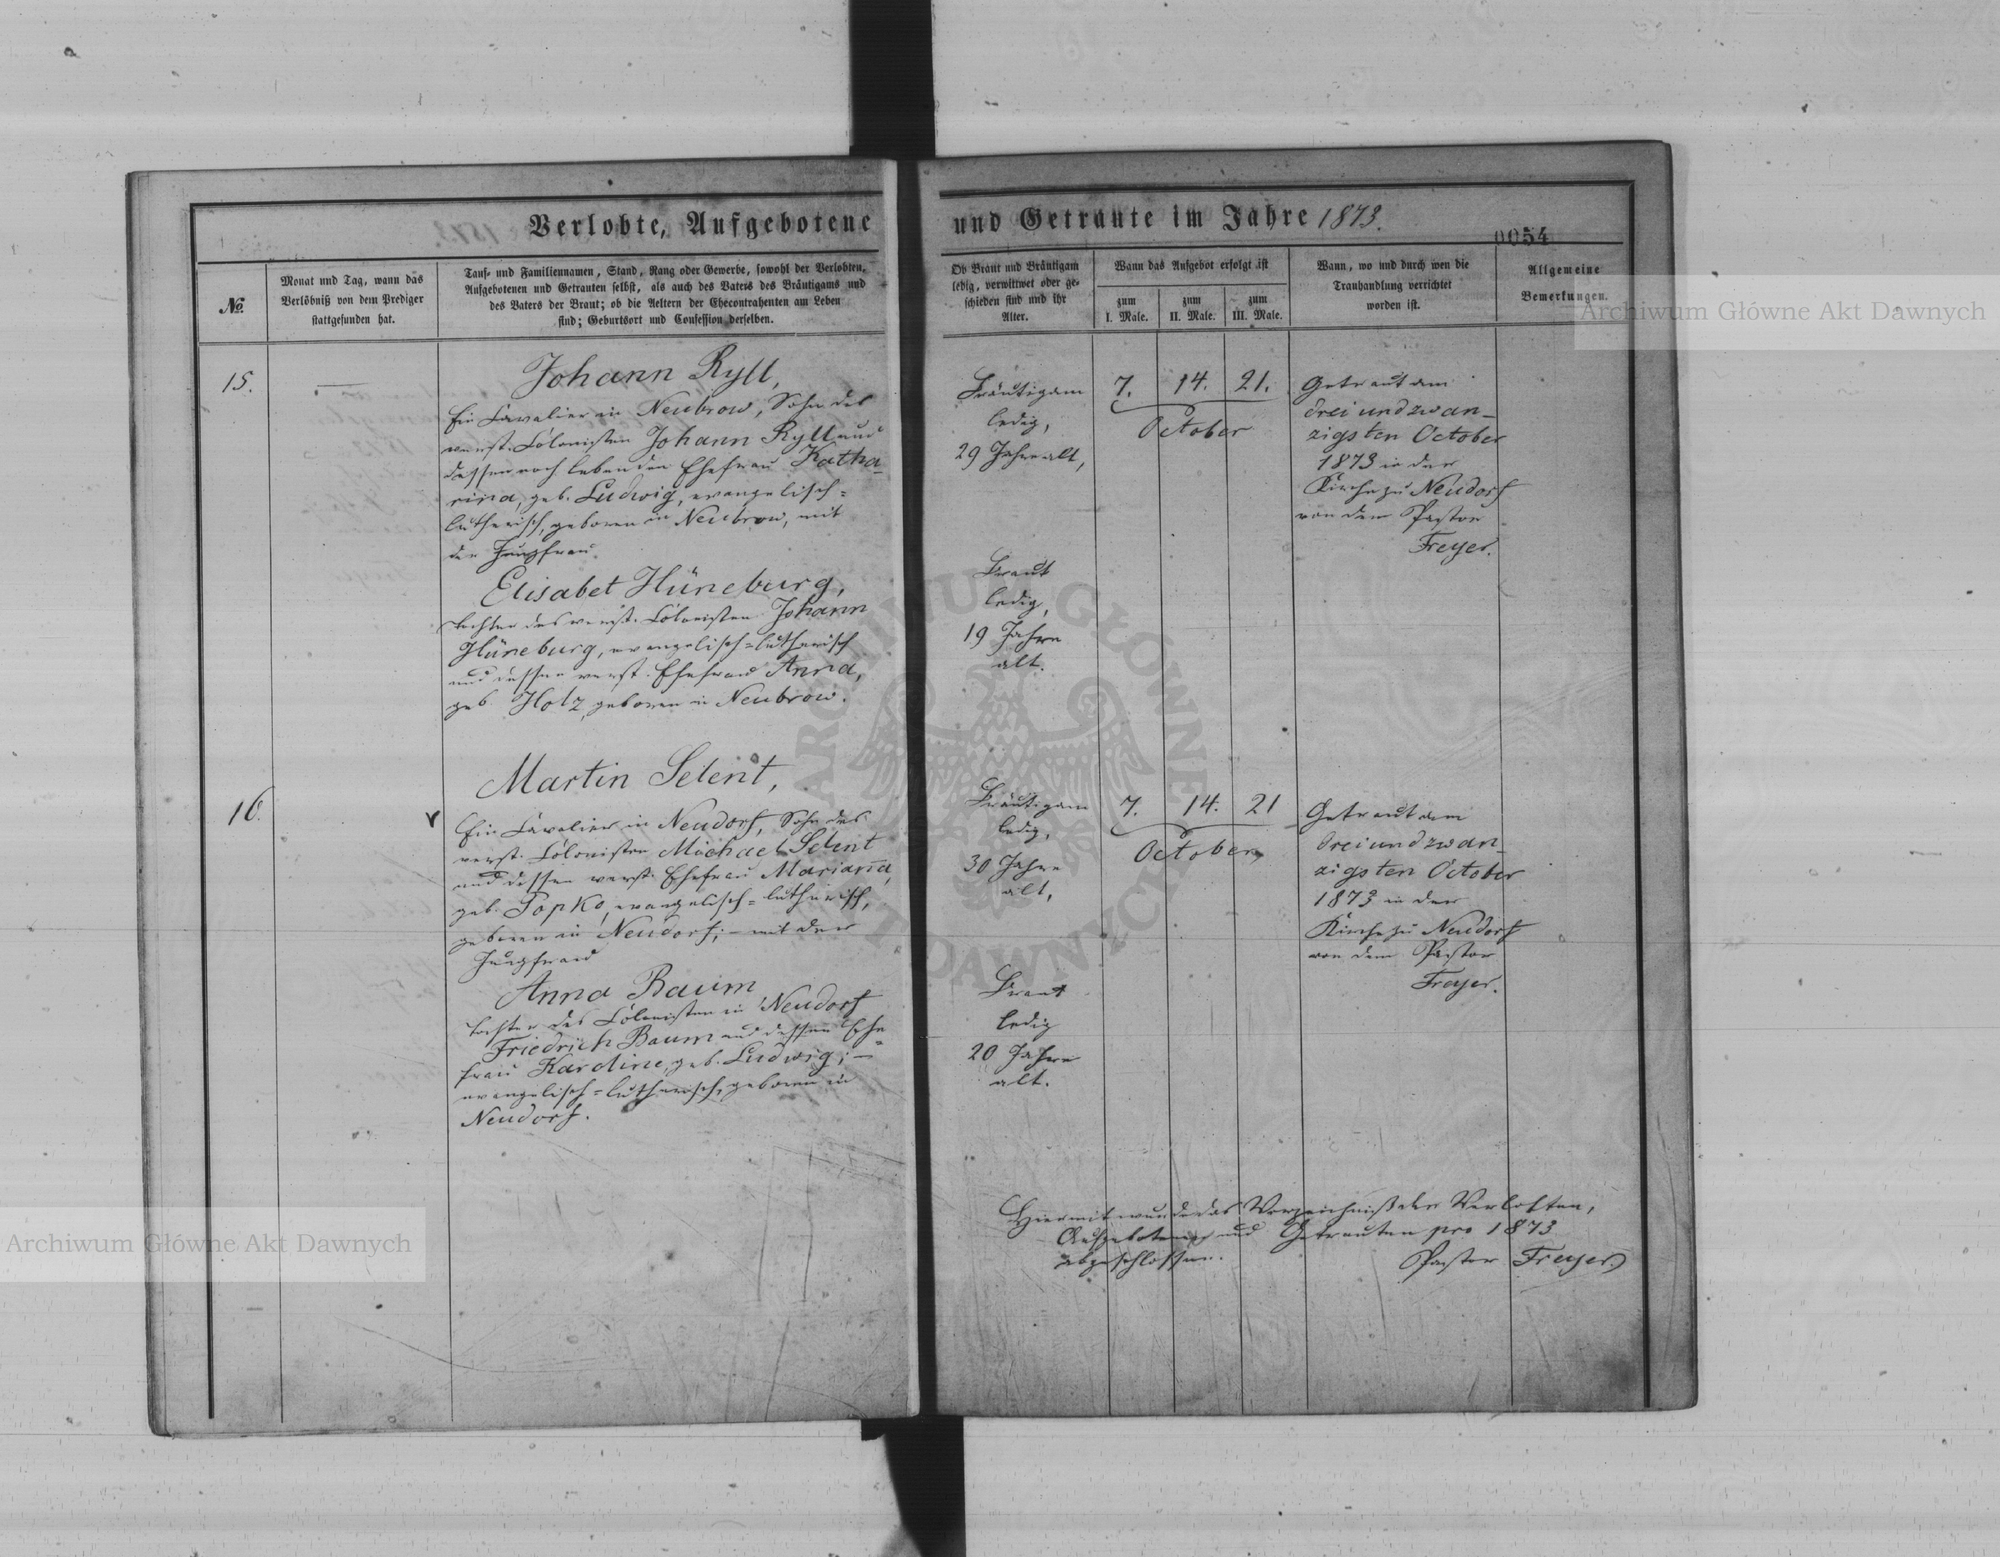 Verlobte, Aufgebotene und Getraute im Jahre 1873.
0054
№
Monat und Tag, wann das
Verlöbniß von dem Prediger
stattgefunden hat.
Tauf- und Familiennamen, Stand, Rang oder Gewerbe, sowohl der Verlobten,
Aufgebotenen und Getrauten selbst, als auch des Vaters des Bräutigams und
des Vaters der Braut; ob die Aeltern der Ehecontrahenten am Leben
sind; Geburtsort und Confession derselben.
Ob Braut und Bräutigam
ledig, verwittwet oder ge-
schieden sind und ihr
Alter.
Wann das Aufgebot erfolgt ist
zum
I. Male.
zum
II. Male.
zum
III. Male.
Wann, wo und durch wen die
Trauhandlung verrichtet
worden ist.
Allgemeine
Bemerkungen.
15.
—
Johann Ryll,
Ein Cavalier in Neubrow, Sohn des
verst. Colonisten Johann Ryll und
dessen noch lebenden Ehefrau Katha-
rina, geb. Ludwig, evangelisch=
lutherisch, geboren in Neubrow, mit
der Jungfrau
Elisabet Hüneburg,
Tochter des verst. Colonisten Johann
Hüneburg, evangelisch=lutherisch
und dessen verst. Ehefrau Anna,
geb. Hotz, geboren in Neubrow.
Bräutigam
ledig,
29 Jahre alt,
Braut
ledig,
19 Jahre
alt.
7. 14. 21.
October
Getraut am
drei und zwan-
zigsten October
1873 in der
Kirche zu Neudorf
von dem Pastor
Freyer.
16.
Martin Selent,
Ein Cavalier in Neudorf, Sohn des
verst. Colonisten Michael Selent
und dessen verst. Ehefrau Marianna,
geb. Popko, evangelisch=lutherisch,
geboren in Neudorf; – mit der
Jungfrau
Anna Baum
Tochter des Colonisten in Neudorf
Friedrich Baum und dessen Ehe=
frau Karoline, geb. Ludwig; –
evangelisch=lutherisch, geboren in
Neudorf.
Bräutigam
ledig,
30 Jahre
alt,
Braut
ledig
20 Jahre
alt.
7. 14. 21
October
Getraut am
drei und zwan-
zigsten October
1873 in der
Kirche zu Neudorf
von dem Pastor
Freyer.
Hiermit wurde das Verzeichniß der Verlobten,
Aufgebotenen und Getrauten pro 1873
abgeschlossen.
Pastor Freyer
Archiwum Główne Akt Dawnych
Archiwum Główne Akt Dawnych
ARCHIWUM GŁÓWNE AKT DAWNYCH